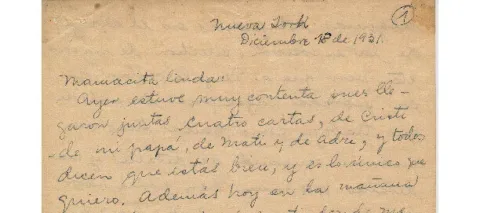 ①
Nueva York
Diciembre 18 de 1931.
Mamacita linda:
Ayer estuve muy contenta pues lle-
garon juntas cuatro cartas, de Cristi
de mi papá, de Mati y de Adri, y todos
dicen que estás bien, y es lo único que
quiero. Además hoy en la mañana